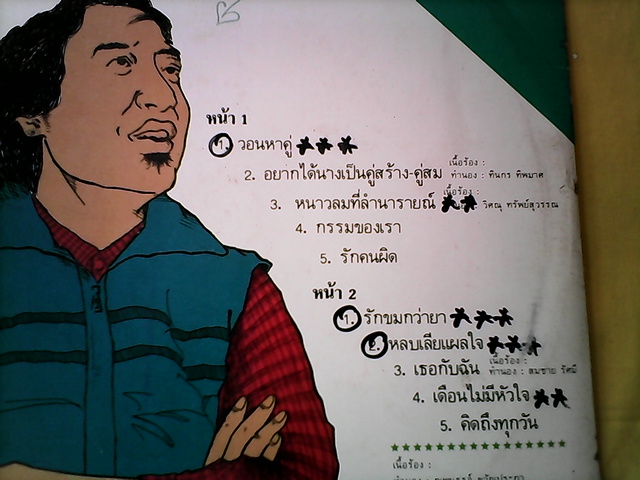 หน้า 1
1. วอนหาคู่
เนื้อร้อง :
2. อยากได้นางเป็นคู่สร้าง-คู่สม ทำนอง : ทินกร ทิพมาศ
เนื้อร้อง :
3. หนาวลมที่ลำนารายณ์ วิศณุ ทรัพย์สุวรรณ
4. กรรมของเรา
5. รักคนผิด
หน้า 2
1. รักขมกว่ายา
2. หลบเลียแผลใจ
เนื้อร้อง :
3. เธอกับฉัน ทำนอง : สมชาย รัศมี
4. เดือนไม่มีหัวใจ
5. คิดถึงทุกวัน
เนื้อร้อง :